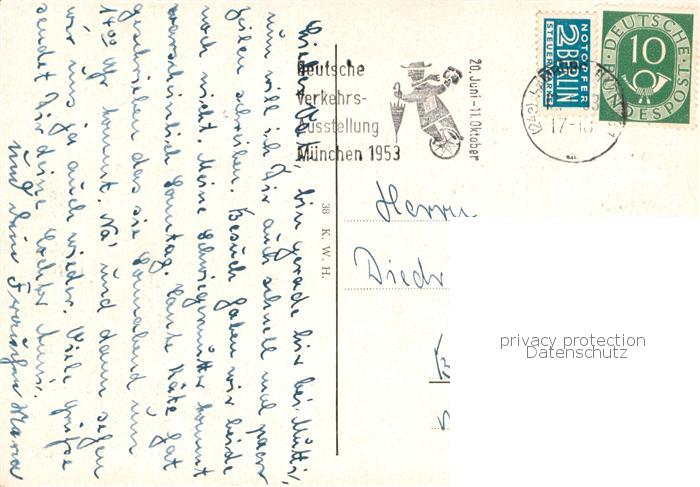 Lieber Vati, bin gerade hier bei Mutti,
nun will ich Dir auch schnell mal paar
Zeilen schreiben. Besuch haben wir beide
noch nicht. Meine Schwiegermutter kommt
warscheinlich Sonntag. Tante Käte hat
geschrieben das sie Sonnabend um
14⁰⁰ Uhr kommt. Na' und dann sehen
wir uns ja auch wieder. Viele Grüsse
sendet Dir deine Tochter
und dein
38 K. W. H.
Deutsche
Verkehrs-
Ausstellung
München 1953
20. Juni - 11. Oktober
NOTOPFER
2 BERLIN
STEUERMARKE
DEUTSCHE
10
BUNDESPOST
17-18
Herrn
Diedr
privacy protection
Datenschutz